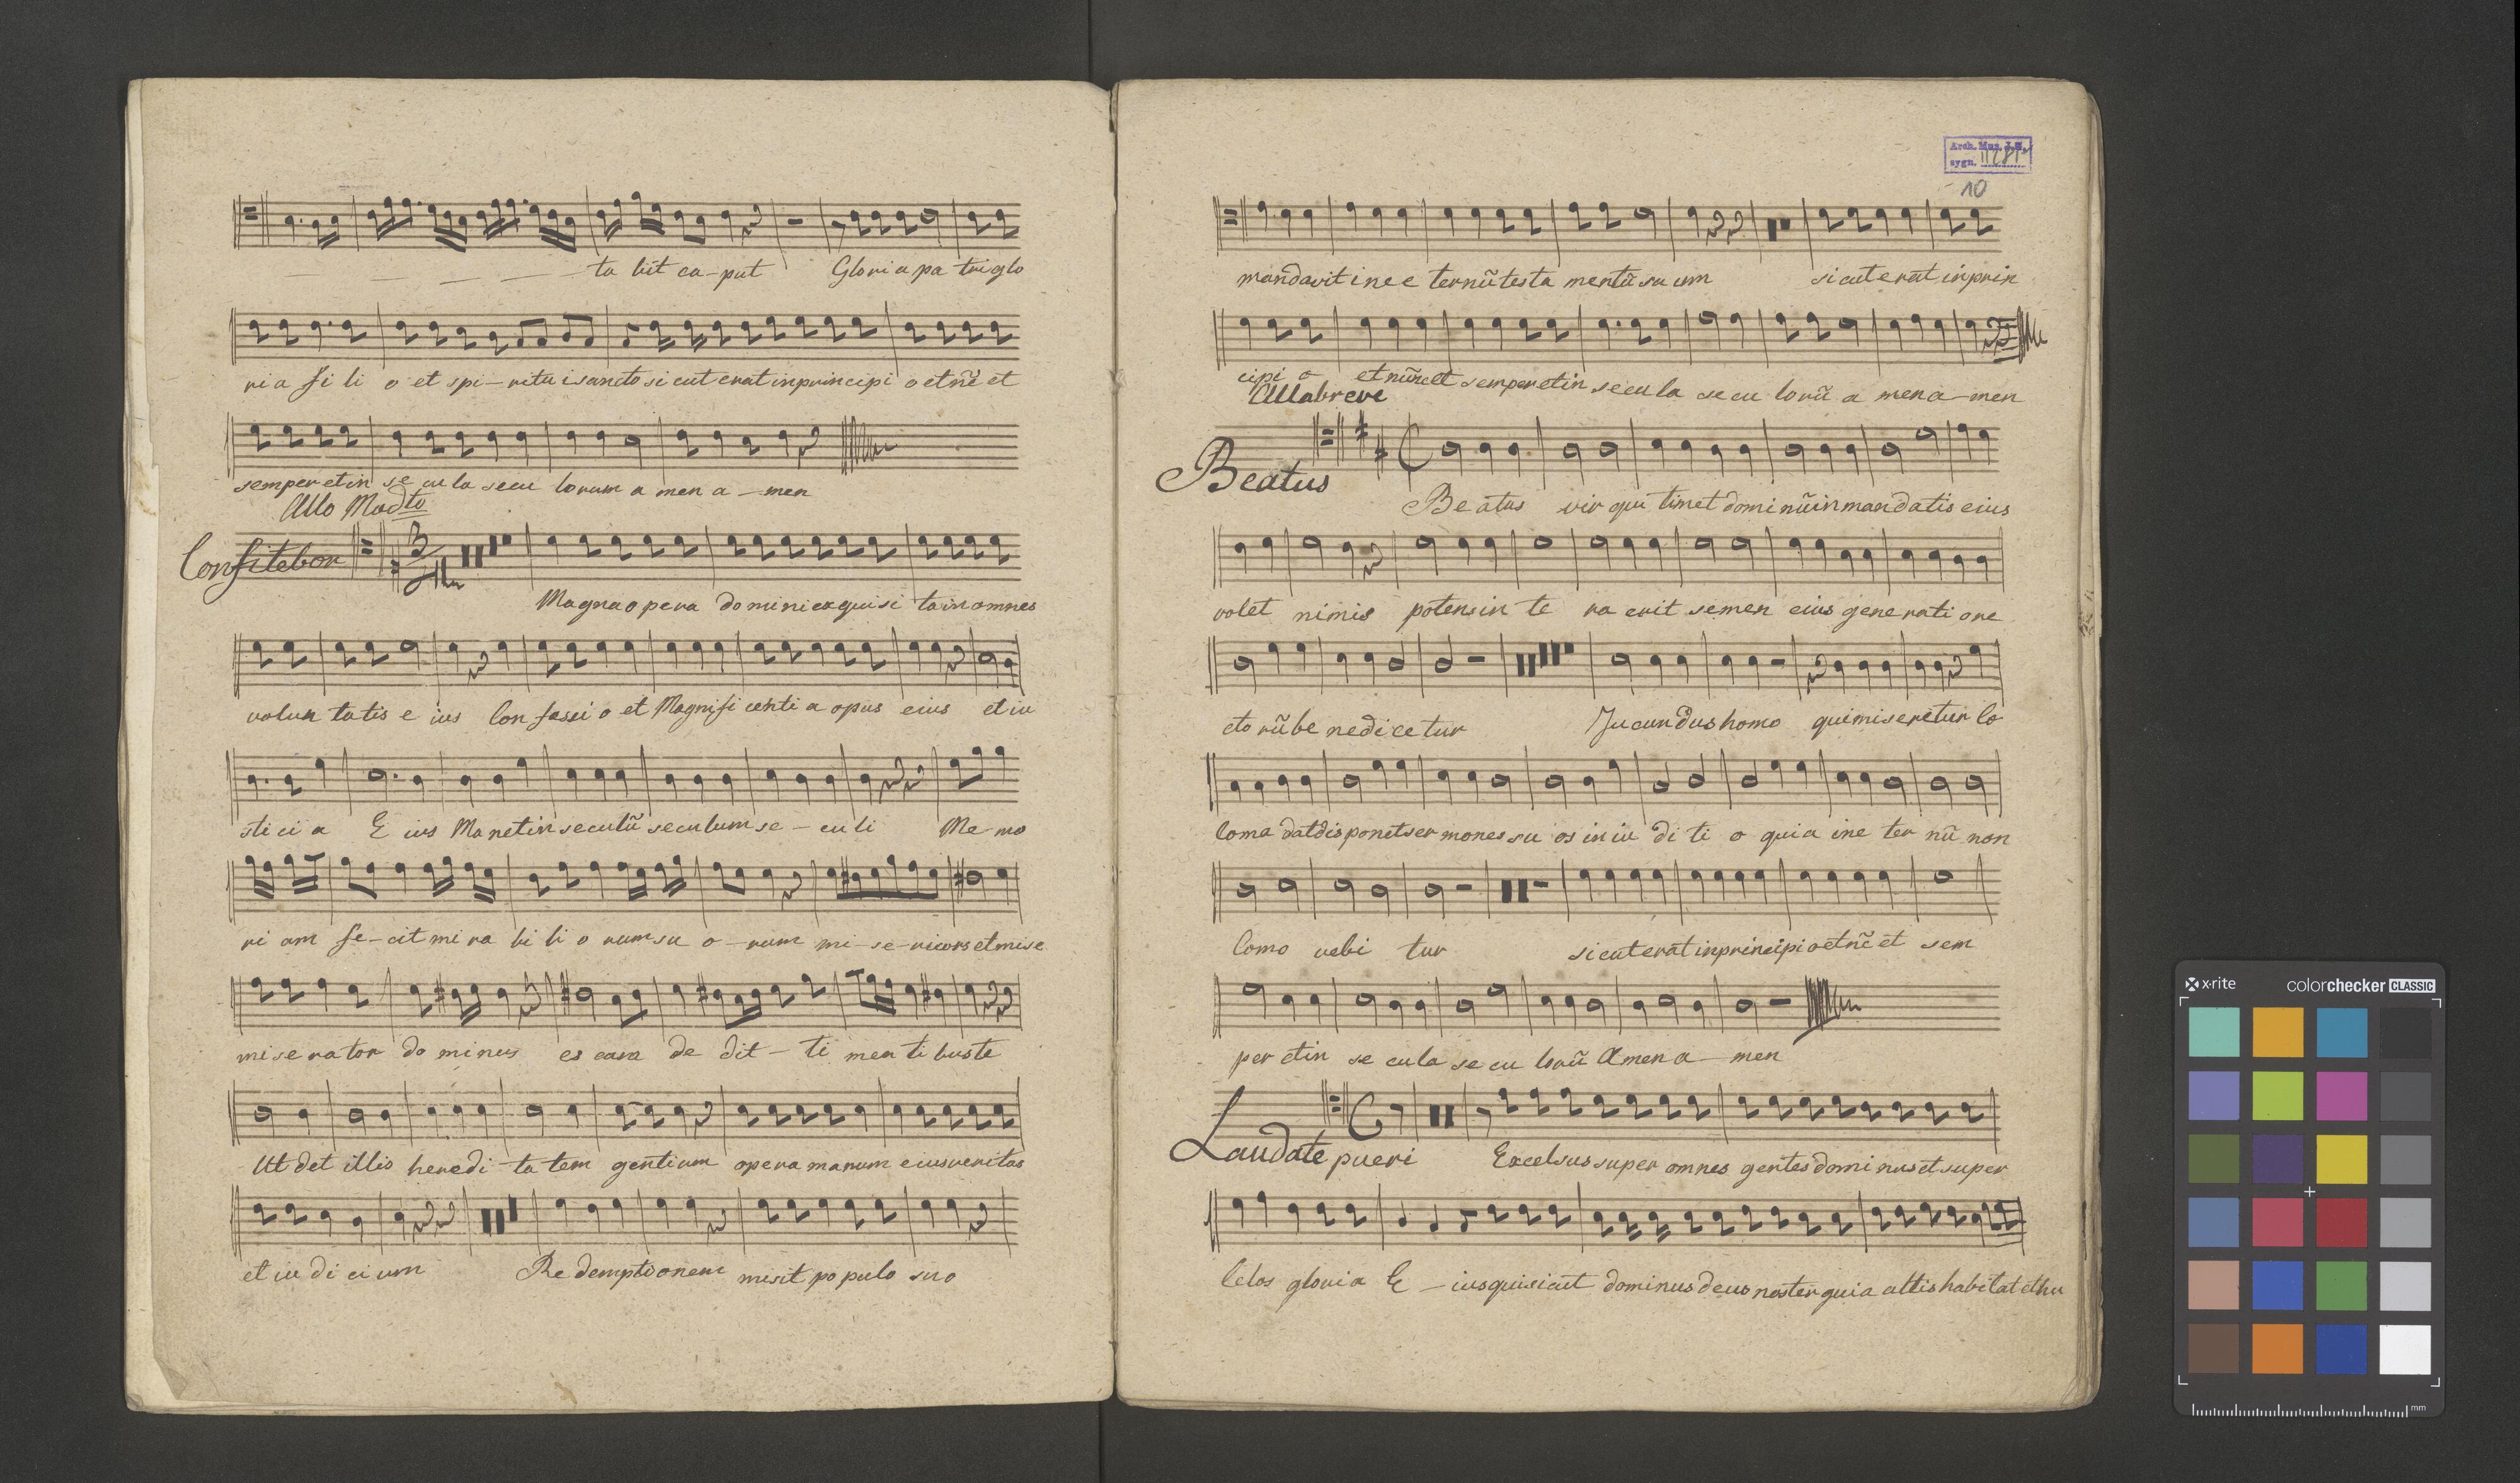 ta bit ca-put Gloria pa tri glo
ria fi li o et spi-ritui sancto sicut erat in principi o et nc̃ et
semper et in se cu la secu lorum a men a-men
Allo Modto
Confitebor
Magna opera domini exquisi ta in omnes
volun tatis e ius Con fessi o et Magnifi centi a opus eius et iu
sti ci a E ius Manet in seculũ seculum se-culi Me mo
ri am fe-cit mi ra bi li o rum su o-rum mi-se-ricors et mise
mi se rator do minus es cam de dit-ti men ti bus te
Ut det illis heredi-ta tem gentium opera manum eius veritas
et iu di ci um Re demptionem misit po pulo suo
Arch. Muz. J.G.
sygn.
10
mandavit in e e ternũ testa mentũ su um sicut erat in prin
cipi o et nũnc et semper et in secu la secu lorũ a men a-men
Allabreve
Beatus
Be atus vir qui timet domi nũ in mandatis eius
volet nimis potens in te ra erit semen eius gene rati one
cto rũ be nedi ce tur Jucundus homo qui miseretur Co
Coma dat disponet sermones su os in iu di ti o quia in e ter nũ non
Como vebi tur sicut erat in principi o et nc̃ et sem
per et in se cula se cu lorũ Amen a-men
Laudate pueri Excelsus super omnes gentes dominus et super
Celos gloria E-ius quis icut dominus deus noster qui a altis habitat et hu